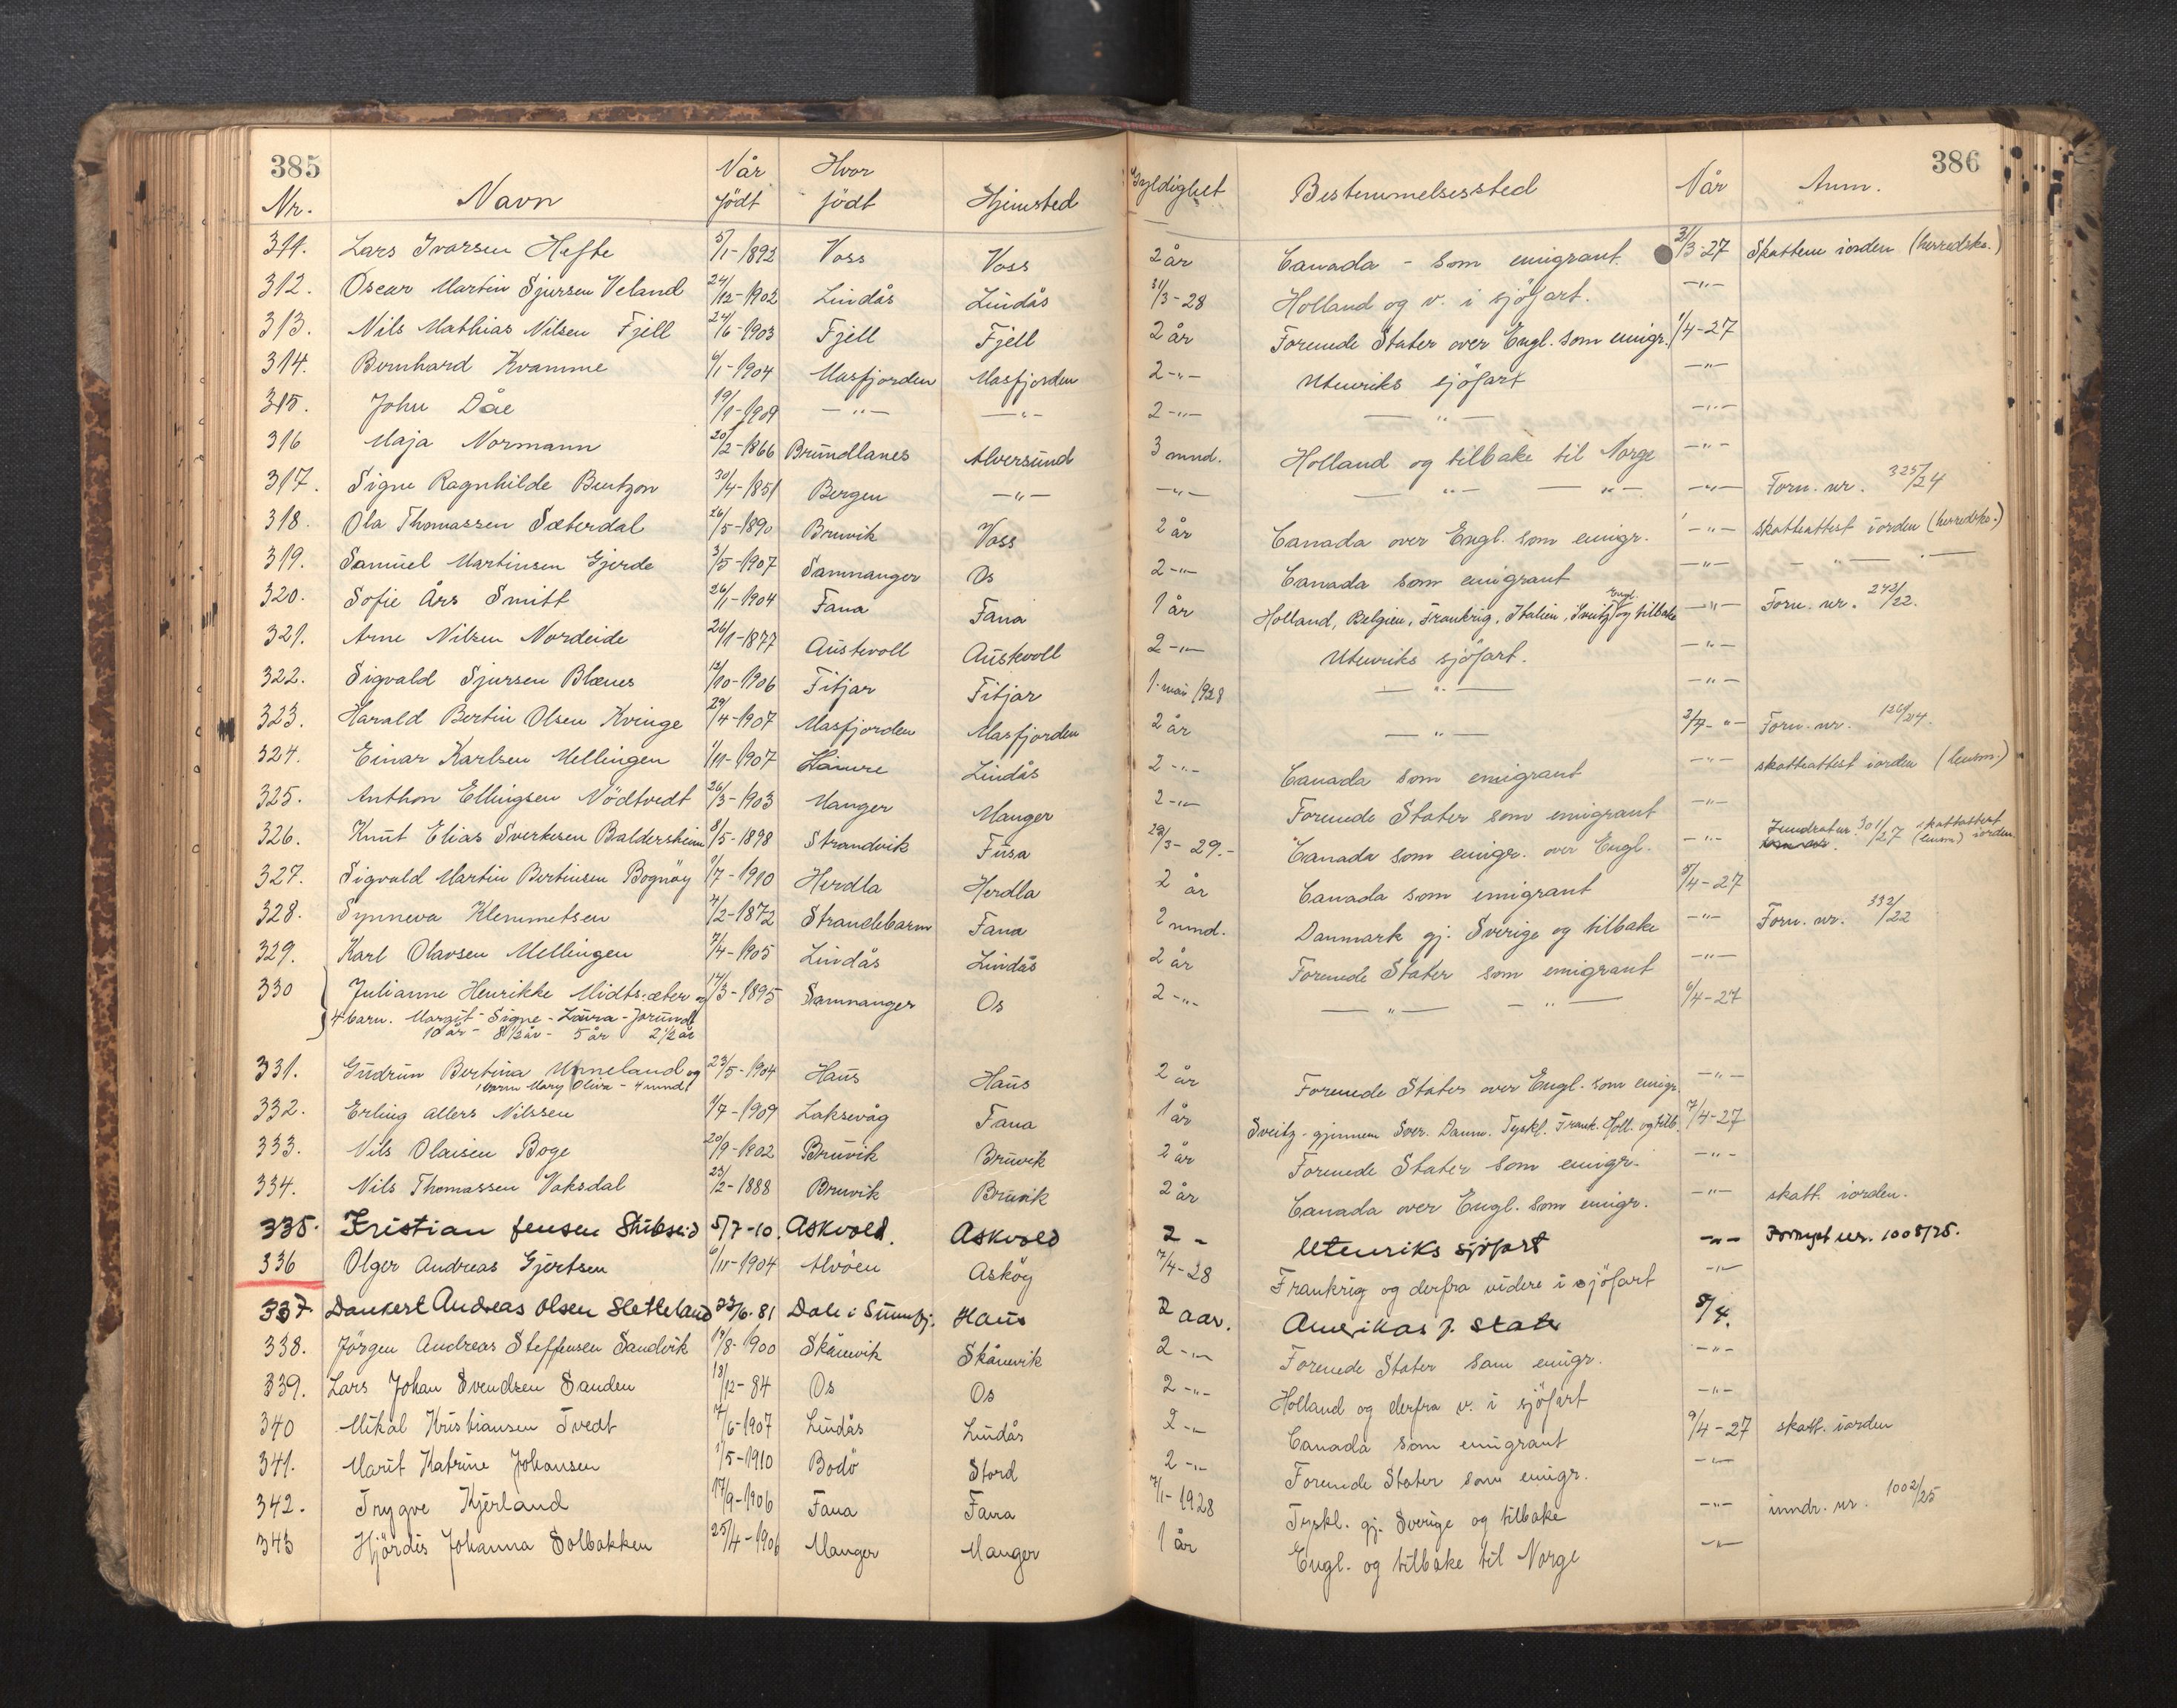 385
386
Nr. Navn Når födt Hvor födt Hjemsted Gyldighet Bestemmelsessted Når Anm.
311. Lars Ivarsen Hefte 5/1-1892 Voss Voss 2 år Canada - som emigrant. 31/3-27 Skattem iorden (herredsks.)
312. Oscar Martin Sjursen Veland 24/12-1902 Lindås Lindås 31/3-28 Holland og v. i sjöfart. -"-
313. Nils Mathias Nilsen Fjell 24/6-1903 Fjell Fjell 2 år Forenede Stater over Engl. som emigr. 1/4-27
314. Bernhard Kvamme 6/1-1904 Masfjorden Masfjorden 2 -"- Utenriks sjöfart -"-
315. John Dåe 19/1-1909 -"- -"- 2 -"- -"- -"-
316 Maja Normann 20/2-1866 Brundlanes Alversund 3 mnd. Holland og tilbake til Norge -"-
317. Signe Ragnhilde Bentzon 30/4-1851 Bergen -"- -"- -"- -"- -"- Forn. nr. 325/24
318. Ola Thomassen Sæterdal 26/5-1890 Bruvik Voss 2 år Canada over Engl. som emigr. -"- skatteattest iorden (herredsks.)
319. Samuel Martinsen Gjerde 3/5-1907 Samnanger Os 2 -"- Canada som emigrant -"- - " -
320. Sofie Års Smitt 26/1-1904 Fana Fana 1 år Holland, Belgien, Frankrig, Italien, Sveitz Engl. og tilbake -"- Forn. nr. 243/22.
321. Arne Nilsen Nordeide 26/1-1877 Austevoll Austevoll 2 -"- Utenriks sjöfart. -"-
322. Sigvald Sjursen Blænes 12/10-1906 Fitjar Fitjar 1. mai 1928 -"- -"-
323. Harald Bertin Olsen Kvinge 29/4-1907 Masfjorden Masfjorden 2 år -"- 2/4-"- Forn. nr. 126/24.
324. Einar Karlsen Mellingen 1/11-1907 Lindås 2 -"- Canada som emigrant -"- skatteattest iorden (lensm.)
325. Anthon Ellingsen Nödtvedt 26/3-1903 Manger Manger 2 -"- Forenede Stater som emigrant -"-
326. Knut Elias Sverkesen Baldersheim 8/5-1898 Strandvik Fusa 29/3-29.- Canada som emigr. over Engl. -"- 301/27 skatteattest (lensm) iorden
327. Sigvald Martin Bertinsen Bognöy 9/7-1910 Herdla Herdla 2 år Canada som emigrant 5/4-27
328. Synneva Klemmetsen 7/2-1872 Strandebarm Fana 2 mnd. Danmark gj. Sverige og tilbake -"- Forn. nr. 332/22
329. Karl Olavsen Mellingen 7/4-1905 Lindås Lindås 2 år Forenede Stater som emigrant -"-
330 Julianne Henrikke Midtsæter og 14/3-1895 Samnanger Os 2 -"- -"- -"- 6/4-27
4 barn. Margit - Signe - Laura - Jorund
10 år - 8 1/2 år - 5 år 2 1/2 år
331. Gudrun Bertina Unneland og 23/5-1904 Haus Haus 2 år Forenede Stater over Engl. som emigr -"-
1 barn Mary Oliva - 4 mndr
332. Erling Allers Nilssen 1/7-1909 Laksevåg Fana 1 år Sveitz - gjennem Sver. Danm. Tyskl. Frank. Holl. og tilb. 7/4-27
333. Nils Olaisen Boge 20/9-1802 Bruvik Bruvik 2 år Forenede Stater som emigr. -"-
334. Nils Thomassen Vaksdal 23/2-1888 Bruvik Bruvik 2 år Canada over Engl. som emigr. -"- skatt. iorden.
335. Kristian Jensen Stubseid 5/7-10. Askvold. Askvold 2 - Utenriks sjöfart -"- Fornyet nr. 1008/25.
336 Olger Andreas Gjertsen 6/11-1904 Alvöen Asköy 7/4-28 Frankrig og derfra videre i sjöfart -"-
337. Dankert Andreas Olsen Sletteland 23/6-81 Dale i Sunnfj. Haus 2 aar. Amerikas f. stater 8/4.
338. Jörgen Andreas Steffensen Sandvik 19/8-1900 Skånevik Skånevik 2 -"- Forenede Stater som emigr. -"-
339. Lars Johan Svendsen Sanden 13/12-84 Os Os 2 -"- Holland og derfra v. i sjöfart -"-
340 Mikal Kristiansen Tvedt 7/6-1907 Lindås Lindås 2 -"- Canada som emigrant 9/4-27 skatt. iorden
341. Marit Katrine Johansen 1/5-1910 Bodö Stord 2 -"- Forenede Stater som emigr. -"-
342. Trygve Kjerland 17/9-1906 Fana Fana 7/1-1928 Tyskl. gj. Sverige og tilbake -"- inndr. nr. 1002/25
343 Hjördis Johanna Solbakken 25/4-1906 Manger Manger 1 år Engl. og tilbake til Norge -"-